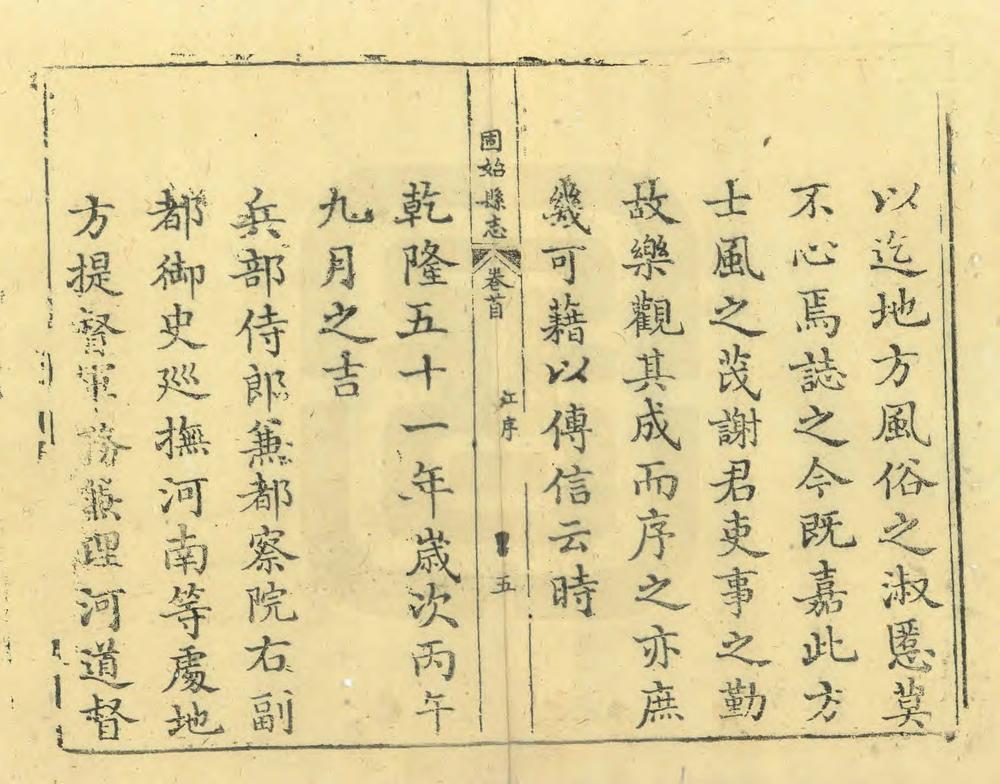 以迄地方風俗之淑慝莫
不心焉誌之今既嘉此方
士風之茂謝君吏事之勤
故樂觀其成而序之亦庶
幾可藉以傳信云時
固始縣志
卷首
江序
五
乾隆五十一年歲次丙午
九月之吉
兵部侍郎兼都察院右副
都御史廵撫河南等處地
方提督軍務兼理河道督